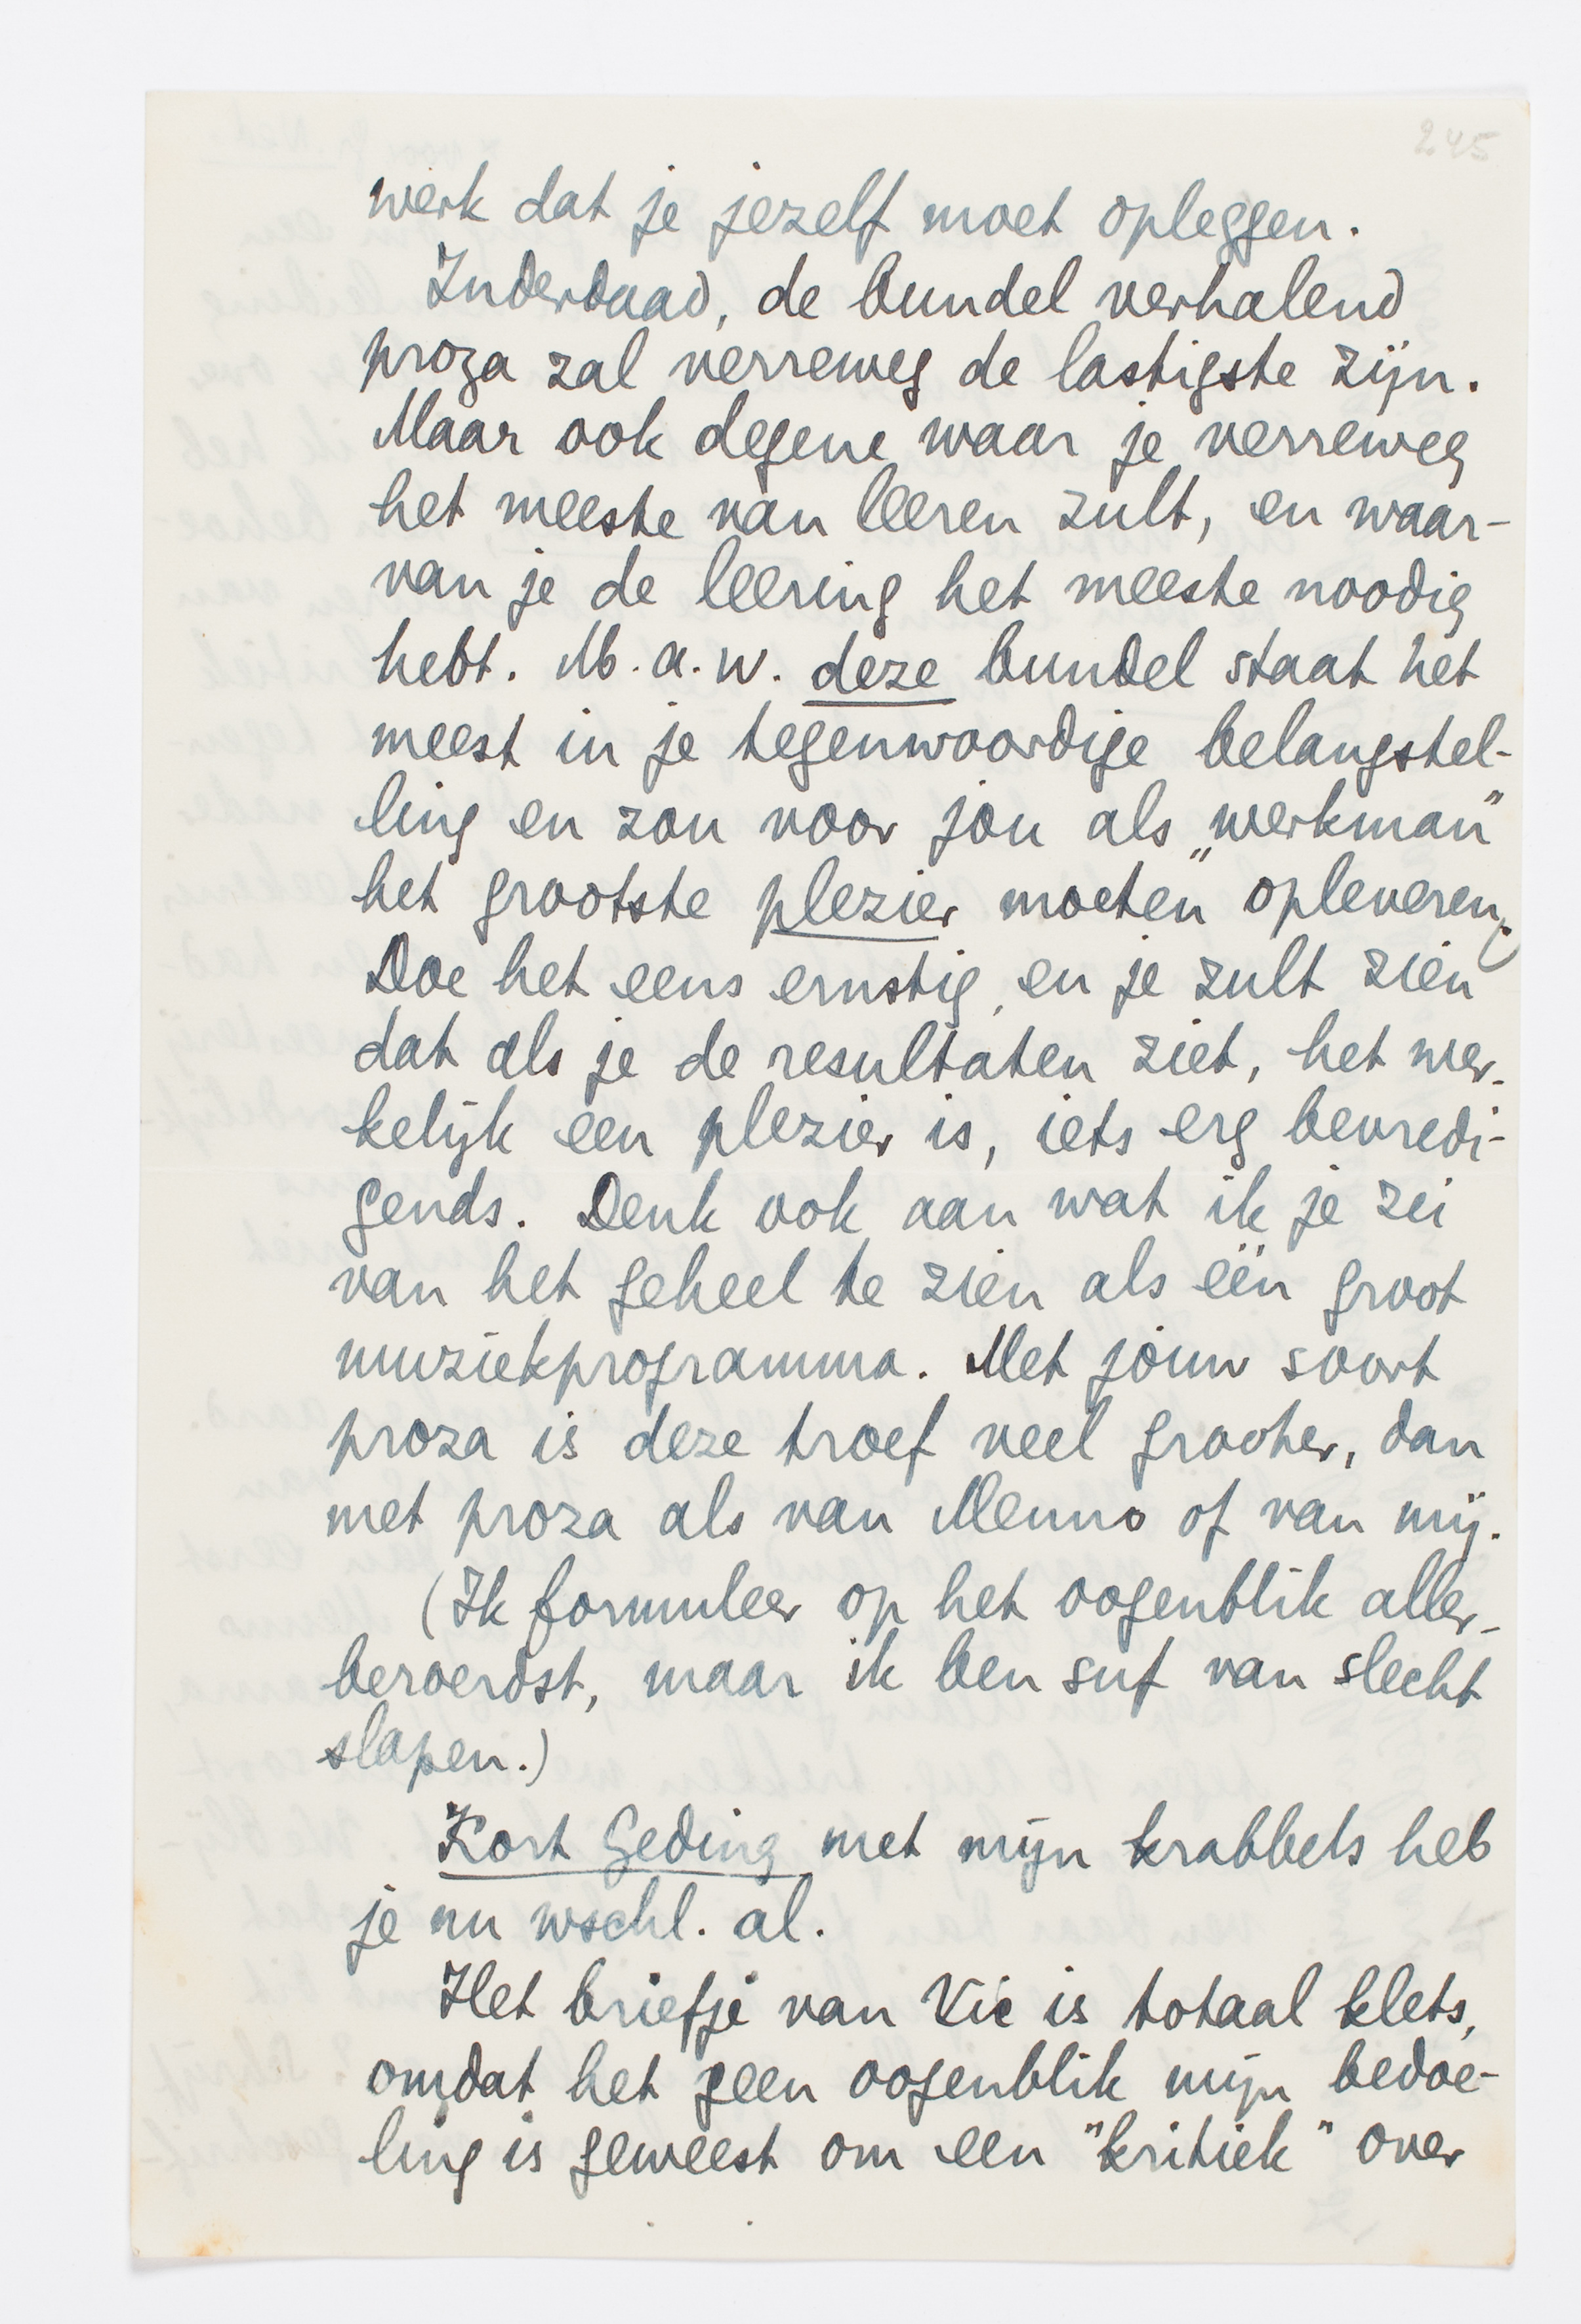 245
werk dat je jezelf moet opleggen.
Inderdaad, de bundel verhalend
proza zal verreweg de lastigste zijn.
Maar ook degene waar je verreweg
het meeste van leeren zult, en waar-
van je de leering het meeste noodig
hebt. M.a.w. deze bundel staat het
meest in je tegenwoordige belangstel-
ling en zou voor jou als „werkman"
het grootste plezier „moeten" opleveren.
Doe het eens ernstig, en je zult zien
dat als je de resultaten ziet, het wer-
kelijk een plezier is, iets erg bevredi-
gends. Denk ook aan wat ik je zei
van het geheel te zien als één groot
muziekprogramma. Met jouw soort
proza is deze troef veel grooter, dan
met proza als van Menno of van mij.
(Ik formuleer op het oogenblik aller-
beroerdst, maar ik ben suf van slecht
slapen.)
Kort Geding met mijn krabbels heb
je nu wschl. al.
Het briefje van Vic is totaal klets,
omdat het geen oogenblik mijn bedoe-
ling is geweest om een "kritiek" over